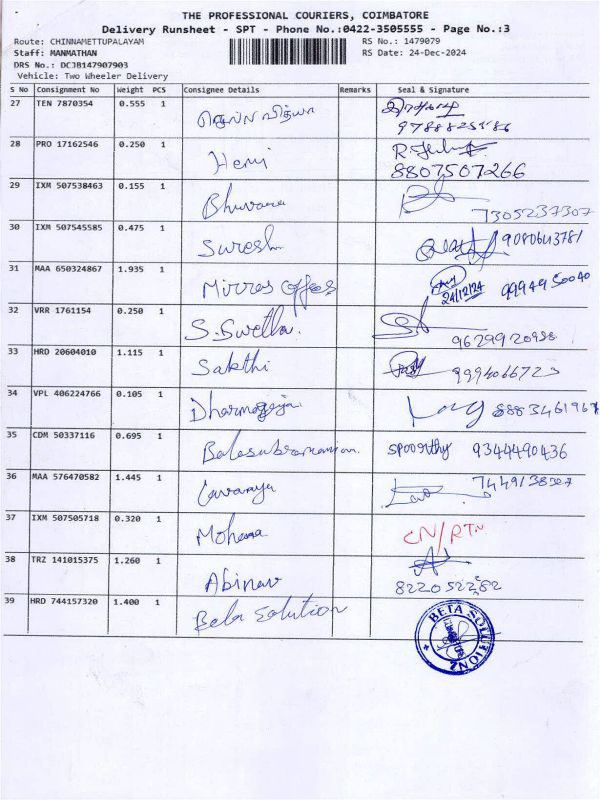 THE PROFESSIONAL COURIERS, COIMBATORE
Delivery Runsheet - SPT - Phone No.:0422-3505555 - Page No.:3
Route: CHINNAMETTUPALAYAM RS No.: 1479079
Staff: MANMATHAN RS Date: 24-Dec-2024
DRS No.: DCJB147907903
Vehicle: Two Wheeler Delivery
S No Consignment No Weight PCS Consignee Details Remarks Seal & Signature
27 TEN 7870354 0.555 1
28 PRO 17162546 0.250 1 Hemi 8807507266
29 IXM 507538463 0.155 1 Bhuvana 7305237307
30 IXM 507545585 0.475 1 Suresh 9080643781
31 MAA 650324867 1.935 1 24/12/24 9994950040
32 VRR 1761154 0.250 1 S. Swetha. 9629920988
33 HRD 20604010 1.115 1 Sakthi 9994066723
34 VPL 406224766 0.105 1 8883461967
35 CDM 50337116 0.695 1 Balasubramaniam. spoorthy 9344490436
36 MAA 576470582 1.445 1 Lavanya
37 IXM 507505718 0.320 1 Mohana CN/RTN
38 TRZ 141015375 1.260 1 Abinav
39 HRD 744157320 1.400 1 Beta Solution
BETA SOLUTIONZ